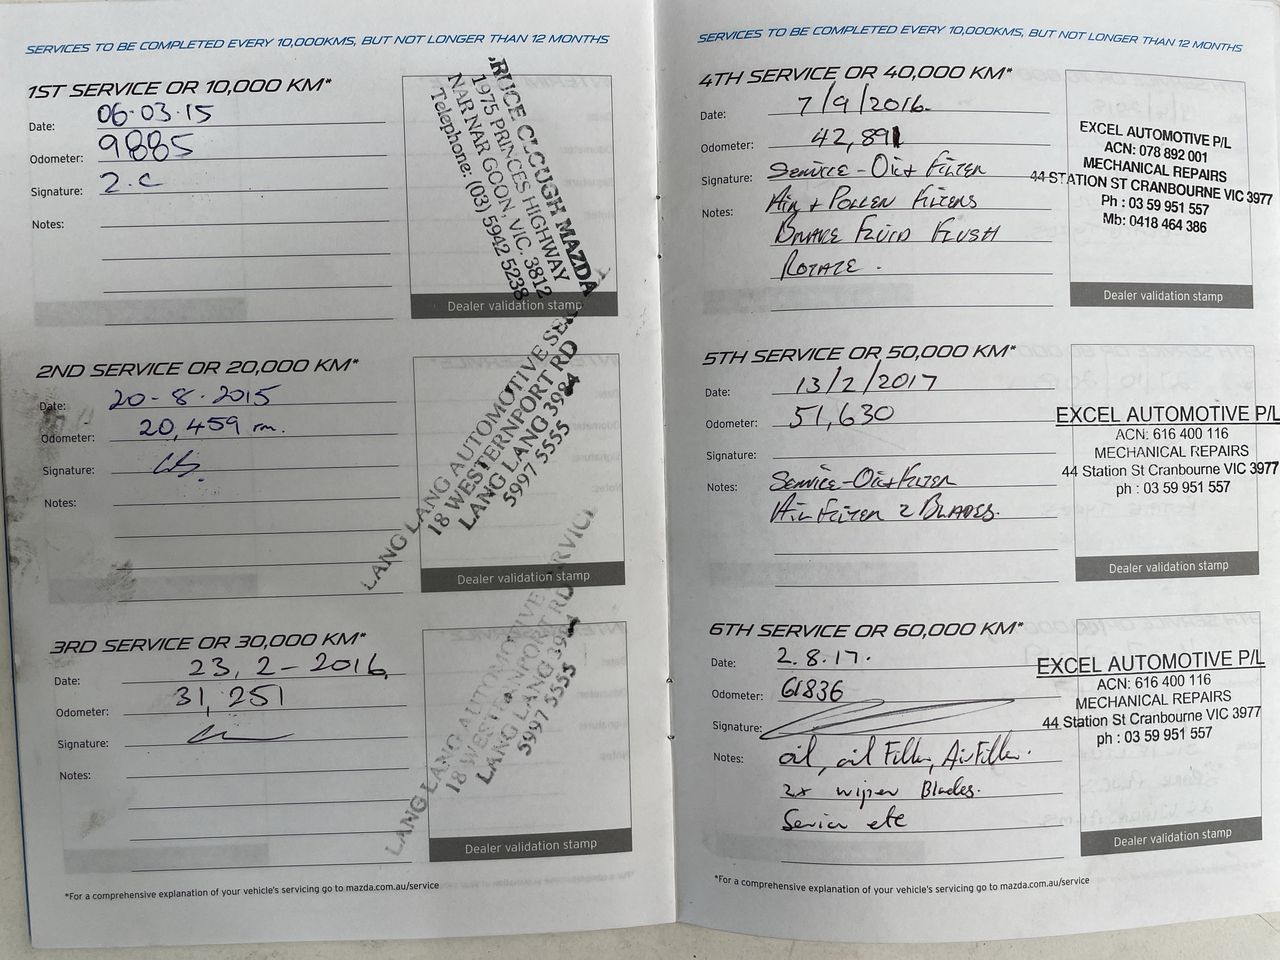 SERVICES TO BE COMPLETED EVERY 10,000KMS, BUT NOT LONGER THAN 12 MONTHS
1ST SERVICE OR 10,000 KM*
Date: 06-03-15
Odometer: 9885
Signature: 2.C
Notes:
BRUCE CLOUGH MAZDA
1975 PRINCES HIGHWAY
NAR NAR GOON, VIC. 3812
Telephone: (03) 5942 5238
Dealer validation stamp
2ND SERVICE OR 20,000 KM*
Date: 20-8-2015
Odometer: 20,459
Signature:
Notes:
LANG LANG AUTOMOTIVE SER
18 WESTERNPORT RD
LANG LANG 3984
5997 5555
Dealer validation stamp
3RD SERVICE OR 30,000 KM*
Date: 23,2-2016
Odometer: 31,251
Signature:
Notes:
LANG LANG AUTOMOTIVE SERVICE
18 WESTERNPORT RD
LANG LANG 3984
5997 5555
Dealer validation stamp
*For a comprehensive explanation of your vehicle's servicing go to mazda.com.au/service
SERVICES TO BE COMPLETED EVERY 10,000KMS, BUT NOT LONGER THAN 12 MONTHS
4TH SERVICE OR 40,000 KM*
Date: 7/9/2016.
Odometer: 42,891
Signature: Service - Oil + Filter
Notes: Air + Pollen Filters
Brake Fluid Flush
Rotate.
EXCEL AUTOMOTIVE P/L
ACN: 078 892 001
MECHANICAL REPAIRS
44 STATION ST CRANBOURNE VIC 3977
Ph : 03 59 951 557
Mb: 0418 464 386
Dealer validation stamp
5TH SERVICE OR 50,000 KM*
Date: 13/2/2017
Odometer: 51,630
Signature:
Notes: Service - Oil + Filter
Air Filter 2 Blades.
EXCEL AUTOMOTIVE P/L
ACN: 616 400 116
MECHANICAL REPAIRS
44 Station St Cranbourne VIC 3977
ph : 03 59 951 557
Dealer validation stamp
6TH SERVICE OR 60,000 KM*
Date: 2.8.17.
Odometer: 61836
Signature:
Notes: oil, oil Filter, Air Filter.
2x wiper Blades.
Service etc
EXCEL AUTOMOTIVE P/L
ACN: 616 400 116
MECHANICAL REPAIRS
44 Station St Cranbourne VIC 3977
ph : 03 59 951 557
Dealer validation stamp
*For a comprehensive explanation of your vehicle's servicing go to mazda.com.au/service